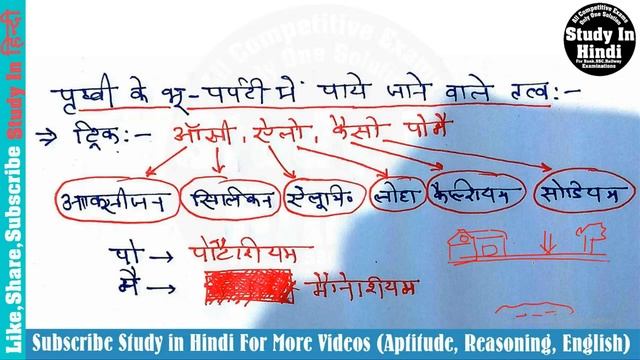 All Competitive Exams
Only One Solution
Study In
Hindi
For Bank,SSC,Railway
Examinations
Like,Share,Subscribe Study In हिन्दी
पृथ्वी के भू-पर्पटी में पाये जाने वाले तत्व:-
→ ट्रिक:- ऑसी, ऐलो, कैसो पोमै
आक्सीजन सिलिकन ऐलूमि० लोहा कैल्शियम सोडियम
पो → पोटैशियम
मै → मैग्नेशियम
Subscribe Study in Hindi For More Videos (Aptitude, Reasoning, English)